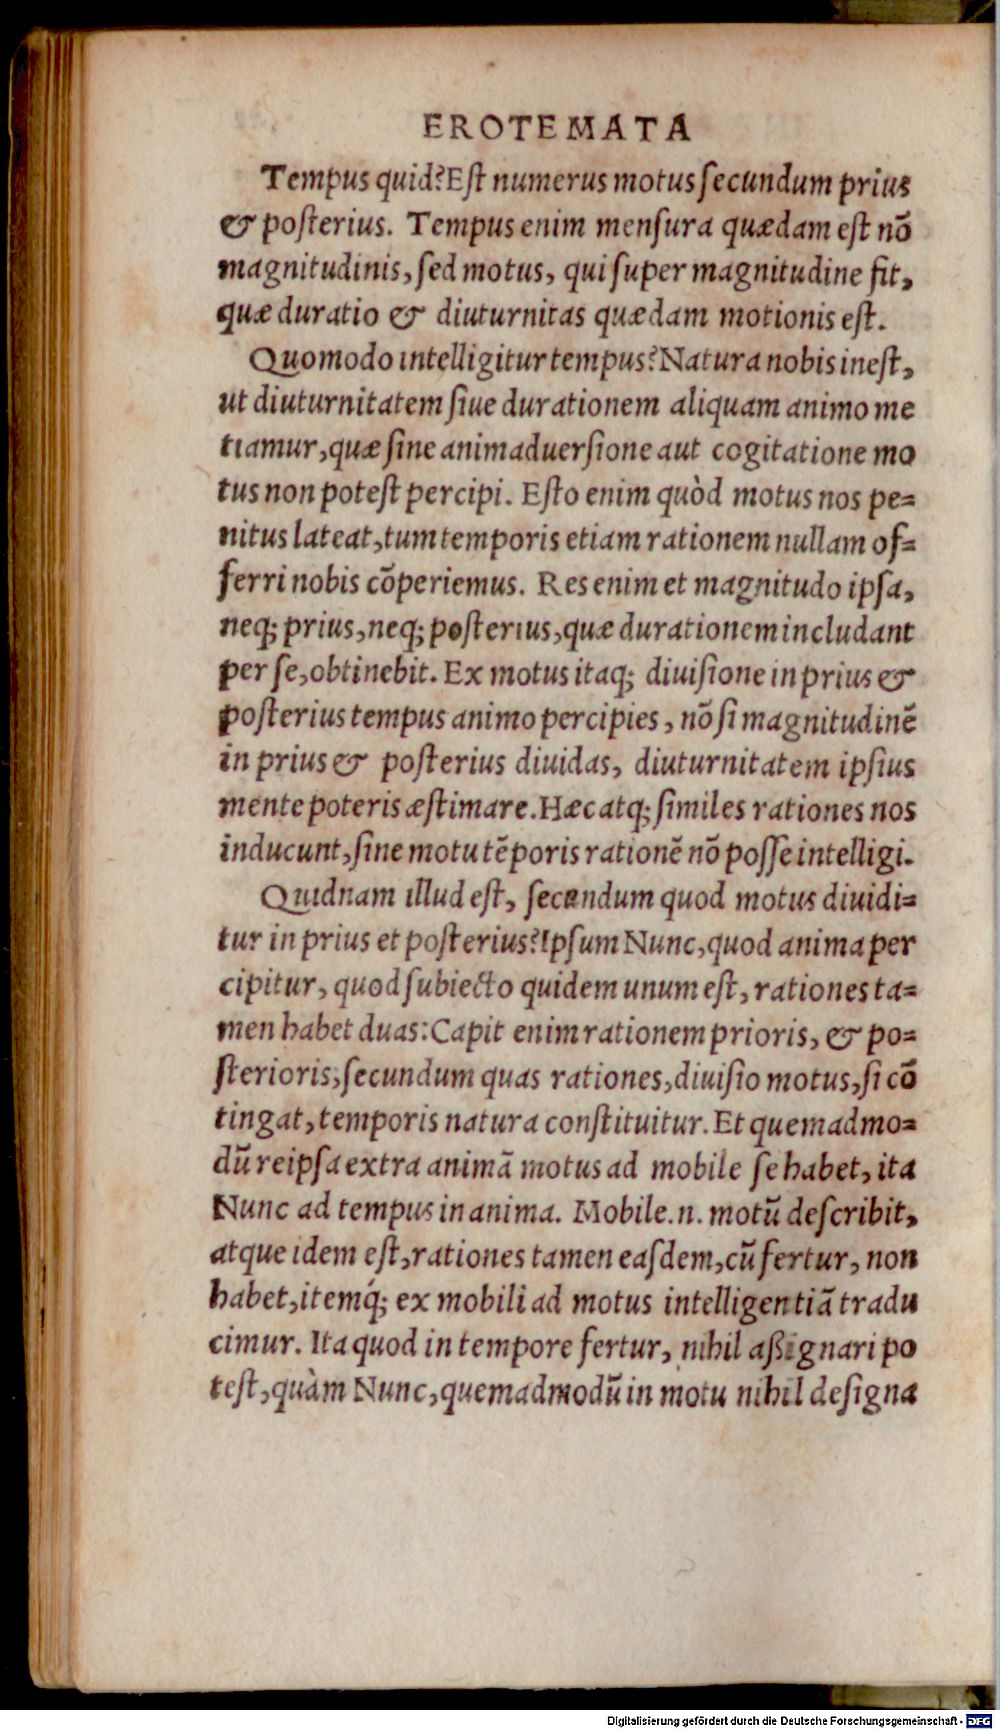 EROTEMATA
Tempus quid? Eſt numerus motus ſecundum prius
& poſterius. Tempus enim menſura quædam eſt nõ
magnitudinis, ſed motus, qui ſuper magnitudine fit,
quæ duratio & diuturnitas quædam motionis eſt.
Quomodo intelligitur tempus? Natura nobis ineſt,
ut diuturnitatem ſiue durationem aliquam animo me
tiamur, quæ ſine animaduerſione aut cogitatione mo
tus non poteſt percipi. Eſto enim quòd motus nos pe=
nitus lateat, tum temporis etiam rationem nullam of=
ferri nobis cõperiemus. Res enim et magnitudo ipſa,
neq; prius, neq; poſterius, quæ durationem includant
per ſe, obtinebit. Ex motus itaq; diuiſione in prius &
poſterius tempus animo percipies, nõ ſi magnitudinẽ
in prius & poſterius diuidas, diuturnitatem ipſius
mente poteris æſtimare. Hæc atq; ſimiles rationes nos
inducunt, ſine motu tẽporis rationẽ nõ poſſe intelligi.
Quidnam illud eſt, ſecundum quod motus diuidi=
tur in prius et poſterius? Ipſum Nunc, quod anima per
cipitur, quod ſubiecto quidem unum eſt, rationes ta=
men habet duas: Capit enim rationem prioris, & po=
ſterioris, ſecundum quas rationes, diuiſio motus, ſi cõ
tingat, temporis natura conſtituitur. Et quemadmo=
dũ reipſa extra animã motus ad mobile ſe habet, ita
Nunc ad tempus in anima. Mobile .n. motũ deſcribit,
atque idem eſt, rationes tamen eaſdem, cũ fertur, non
habet, itemq́; ex mobili ad motus intelligentiã tradu
cimur. Ita quod in tempore fertur, nihil aßignari po
teſt, quàm Nunc, quemadmodũ in motu nihil deſigna
Digitalisierung gefördert durch die Deutsche Forschungsgemeinschaft - DFG